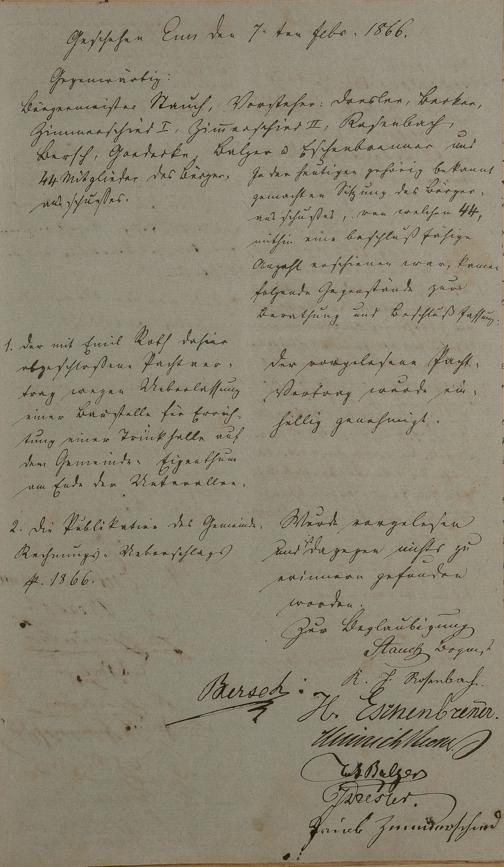 Geschehen Ems den 7ten Febr. 1866.
Gegenwärtig:
Bürgermeister Stauch, Vorsteher: Dresler, Becker,
Zimmerschied I, Zimmerschied II, Rosenbach,
Bersch, Goedecke, Balzer u Eschenbrenner und
44 Mitglieder des Bürger-
ausschußes.
In der heutigen gehörig bekannt
gemachten Sitzung des Bürger-
ausschußes, von welchen 44,
mithin eine beschlußfähige
Anzahl erschienen war, kamen
folgende Gegenstände zur
Berathung und Beschlußfassung.
1. Der mit Emil Roth dahier
abgeschloßene Pachtver-
trag wegen Ueberlassung
einer Baustelle für Errich-
tung einer Trinkhalle auf
dem Gemeinde-Eigenthum
am Ende der Unterallee.
Der vorgelesene Pacht-
Vertrag wurde ein-
hellig genehmigt.
2. Die Publikation des Gemeinde-
Rechnungs-Ueberschlags
p. 1866.
Wurde vorgelesen
und dagegen nichts zu
erinnern gefunden
worden.
Zur Beglaubigung
Stauch Bgmst
K. J. Rosenbach.
Bersch
H. Eschenbrenner.
Heinrich
Balzer
Dresler.
Zimmerschied